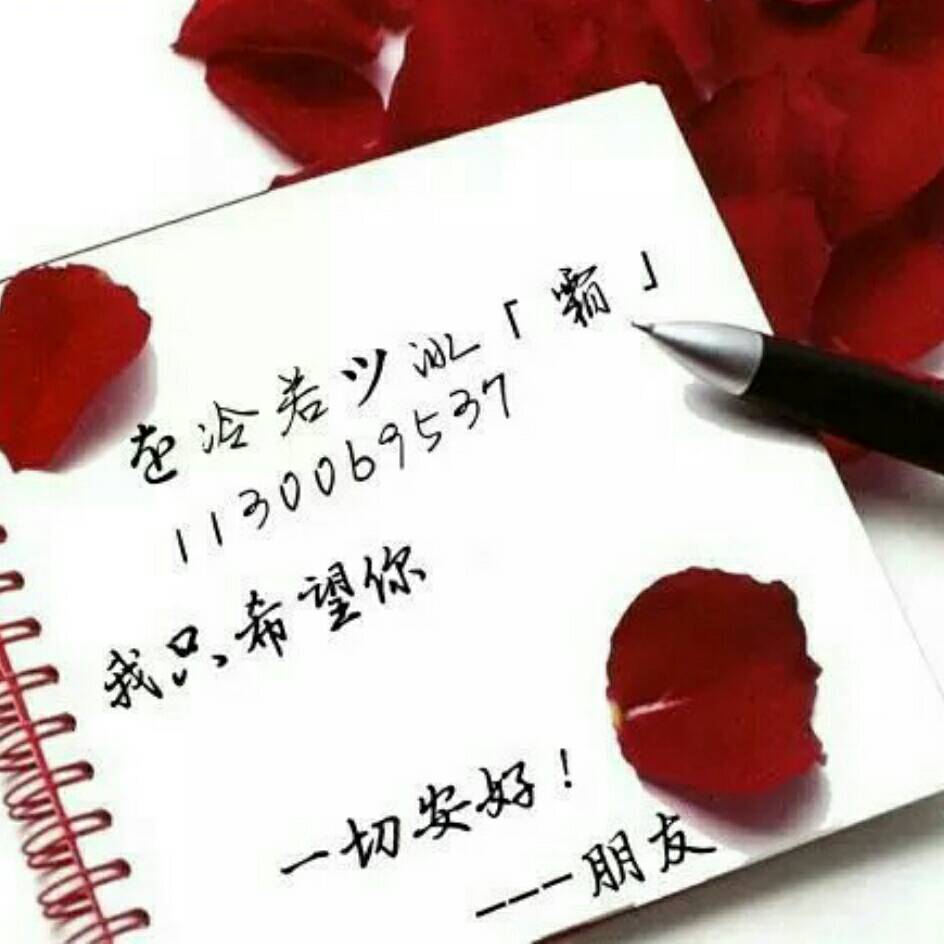 を冷若ツ冰「霜」
1130069537
我只希望你
一切安好！
---朋友